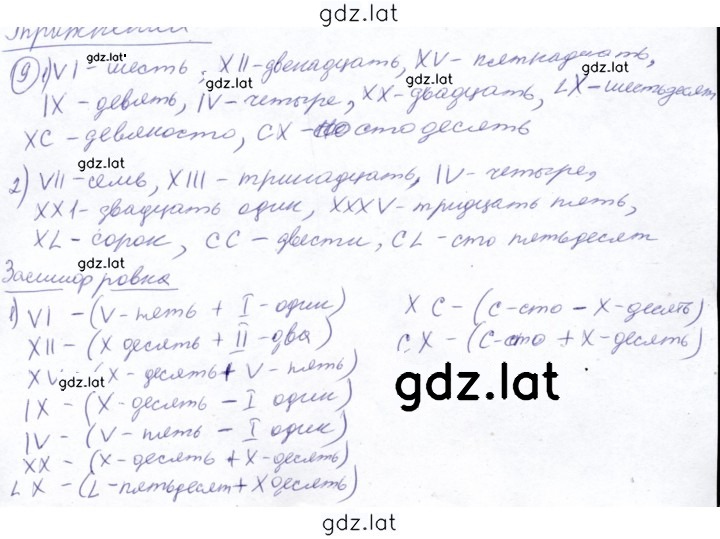 gdz.lat
Упражнения.
9 1) VI - шесть, XII - двенадцать, XV - пятнадцать,
gdz.lat gdz.lat gdz.lat
IX - девять, IV - четыре, XX - двадцать, LX - шестьдесят
XC - девяносто, CX - сто десять
gdz.lat
2) VII - семь, XIII - тринадцать, IV - четыре,
XXI - двадцать один, XXXV - тридцать пять,
XL - сорок, CC - двести, CL - сто пятьдесят
gdz.lat
Засшифровка
1) VI - (V - пять + I - один)
XII - (X десять + II - два)
XV - (X - десять + V - пять)
gdz.lat
IX - (X - десять - I один)
IV - (V - пять - I один)
XX - (X - десять + X - десять)
LX - (L - пятьдесят + X десять)
XC - (C - сто - X - десять)
CX - (C - сто + X - десять)
gdz.lat
gdz.lat